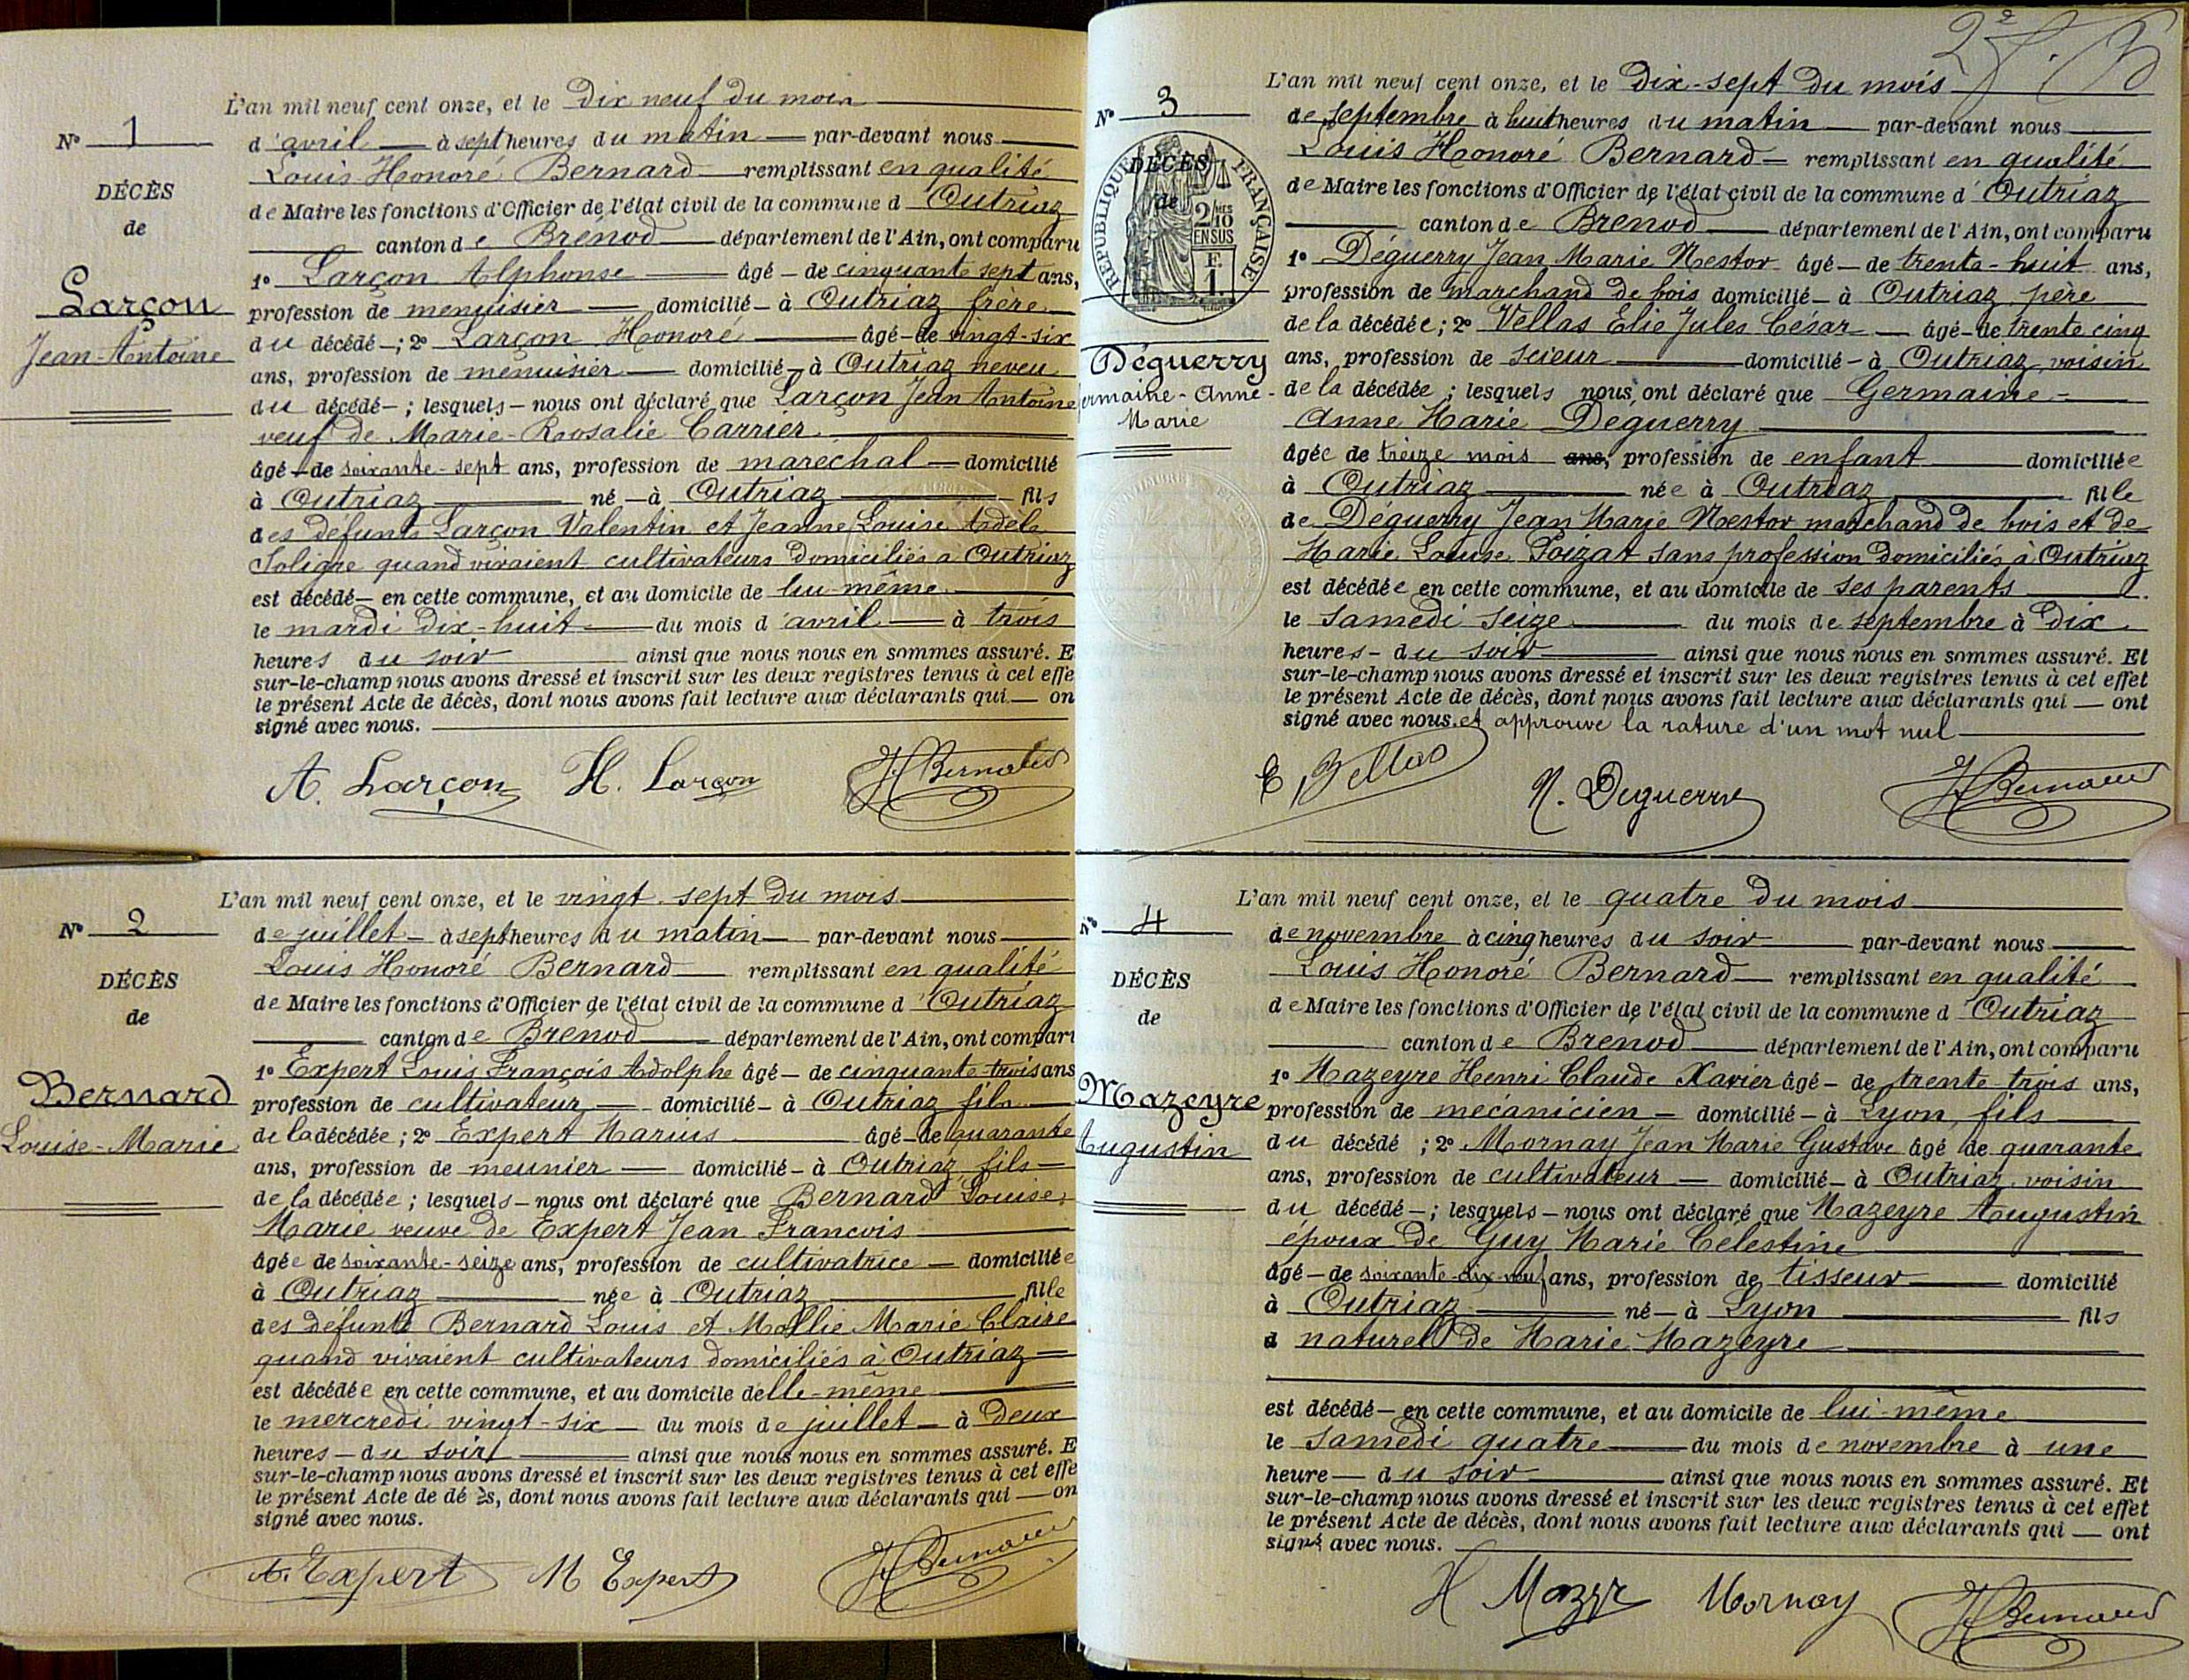 N° 1
DÉCÈS
de
Larçon
Jean-Antoine
L'an mil neuf cent onze, et le dix neuf du mois
d'avril à sept heures du matin par-devant nous
Louis Honoré Bernard remplissant en qualité
de Maire les fonctions d'Officier de l'état civil de la commune d Outriaz
canton de Brenod département de l'Ain, ont comparu
1° Larçon Alphonse âgé de cinquante sept ans,
profession de menuisier domicilié à Outriaz frère
du décédé ; 2° Larçon Honoré âgé de vingt-six
ans, profession de menuisier domicilié à Outriaz neveu
du décédé ; lesquels nous ont déclaré que Larçon Jean Antoine
veuf de Marie-Rosalie Carrier
âgé de soixante-sept ans, profession de maréchal domicilié
à Outriaz né à Outriaz fils
des défunts Larçon Valentin et Jeanne Louise Adèle
Soligne quand vivaient cultivateurs domiciliés à Outriaz
est décédé en cette commune, et au domicile de lui-même
le mardi dix-huit du mois d'avril à trois
heures du soir ainsi que nous nous en sommes assuré. E
sur-le-champ nous avons dressé et inscrit sur les deux registres tenus à cet effe
le présent Acte de décès, dont nous avons fait lecture aux déclarants qui on
signé avec nous.
A. Larçon H. Larçon H Bernard
N° 2
DÉCÈS
de
Bernard
Louise-Marie
L'an mil neuf cent onze, et le vingt sept du mois
de juillet à sept heures du matin par-devant nous
Louis Honoré Bernard remplissant en qualité
de Maire les fonctions d'Officier de l'état civil de la commune d'Outriaz
canton de Brenod département de l'Ain, ont compar
1° Expert Louis François Adolphe âgé de cinquante-trois ans
profession de cultivateur domicilié à Outriaz fils
de la décédée ; 2° Expert Marius âgé de quarante
ans, profession de meunier domicilié à Outriaz fils
de la décédée ; lesquels nous ont déclaré que Bernard Louise
Marie veuve de Expert Jean Francois
âgée de soixante-seize ans, profession de cultivatrice domiciliée
à Outriaz née à Outriaz fille
des défunts Bernard Louis et Mollie Marie Claire
quand vivaient cultivateurs domiciliés à Outriaz
est décédée en cette commune, et au domicile delle-même
le mercredi vingt-six du mois de juillet à deux
heures du soir ainsi que nous nous en sommes assuré. E
sur-le-champ nous avons dressé et inscrit sur les deux registres tenus à cet effe
le présent Acte de dé ès, dont nous avons fait lecture aux déclarants qui on
signé avec nous.
A. Expert M Expert H Bernard
2e
N° 3
RÉPUBLIQUE FRANÇAISE
2/10 EN SUS
F. 1.
DÉCÈS
de
Déguerry
ermaine-Anne-
Marie
L'an mil neuf cent onze, et le dix-sept du mois
de septembre à huit heures du matin par-devant nous
Louis Honoré Bernard remplissant en qualité
de Maire les fonctions d'Officier de l'état civil de la commune d'Outriaz
canton de Brenod département de l'Ain, ont comparu
1° Déguerry Jean Marie Nestor âgé de trente-huit ans,
profession de marchand de bois domicilié à Outriaz père
de la décédée ; 2° Vellas Elie Jules César âgé de trente cinq
ans, profession de scieur domicilié à Outriaz, voisin
de la décédée ; lesquels nous ont déclaré que Germaine-
Anne Marie Deguerry
âgée de treize mois ans, profession de enfant domiciliée
à Outriaz née à Outriaz fille
de Déguerry Jean Marie Nestor marchand de bois et de
Marie Louise Poizat sans profession domiciliés à Outriaz
est décédée en cette commune, et au domicile de ses parents
le samedi seize du mois de septembre à dix
heures du soir ainsi que nous nous en sommes assuré. Et
sur-le-champ nous avons dressé et inscrit sur les deux registres tenus à cet effet
le présent Acte de décès, dont nous avons fait lecture aux déclarants qui ont
signé avec nous. et approuve la rature d'un mot nul
E Vellas N. Deguerry H Bernard
N° 4
DÉCÈS
de
Mazeyre
Augustin
L'an mil neuf cent onze, et le quatre du mois
de novembre à cinq heures du soir par-devant nous
Louis Honoré Bernard remplissant en qualité
de Maire les fonctions d'Officier de l'état civil de la commune d Outriaz
canton de Brenod département de l'Ain, ont comparu
1° Mazeyre Henri Claude Xavier âgé de trente trois ans,
profession de mécanicien domicilié à Lyon, fils
du décédé ; 2° Mornay Jean Marie Gustave âgé de quarante
ans, profession de cultivateur domicilié à Outriaz voisin
du décédé ; lesquels nous ont déclaré que Mazeyre Augustin
époux de Guy Marie Celestine
âgé de soixante-dix-neuf ans, profession de tisseur domicilié
à Outriaz né à Lyon fils
d naturel de Marie Mazeyre
est décédé en cette commune, et au domicile de lui-même
le samedi quatre du mois de novembre à une
heure du soir ainsi que nous nous en sommes assuré. Et
sur-le-champ nous avons dressé et inscrit sur les deux registres tenus à cet effet
le présent Acte de décès, dont nous avons fait lecture aux déclarants qui ont
signé avec nous.
H Mazyr Mornay H Bernard